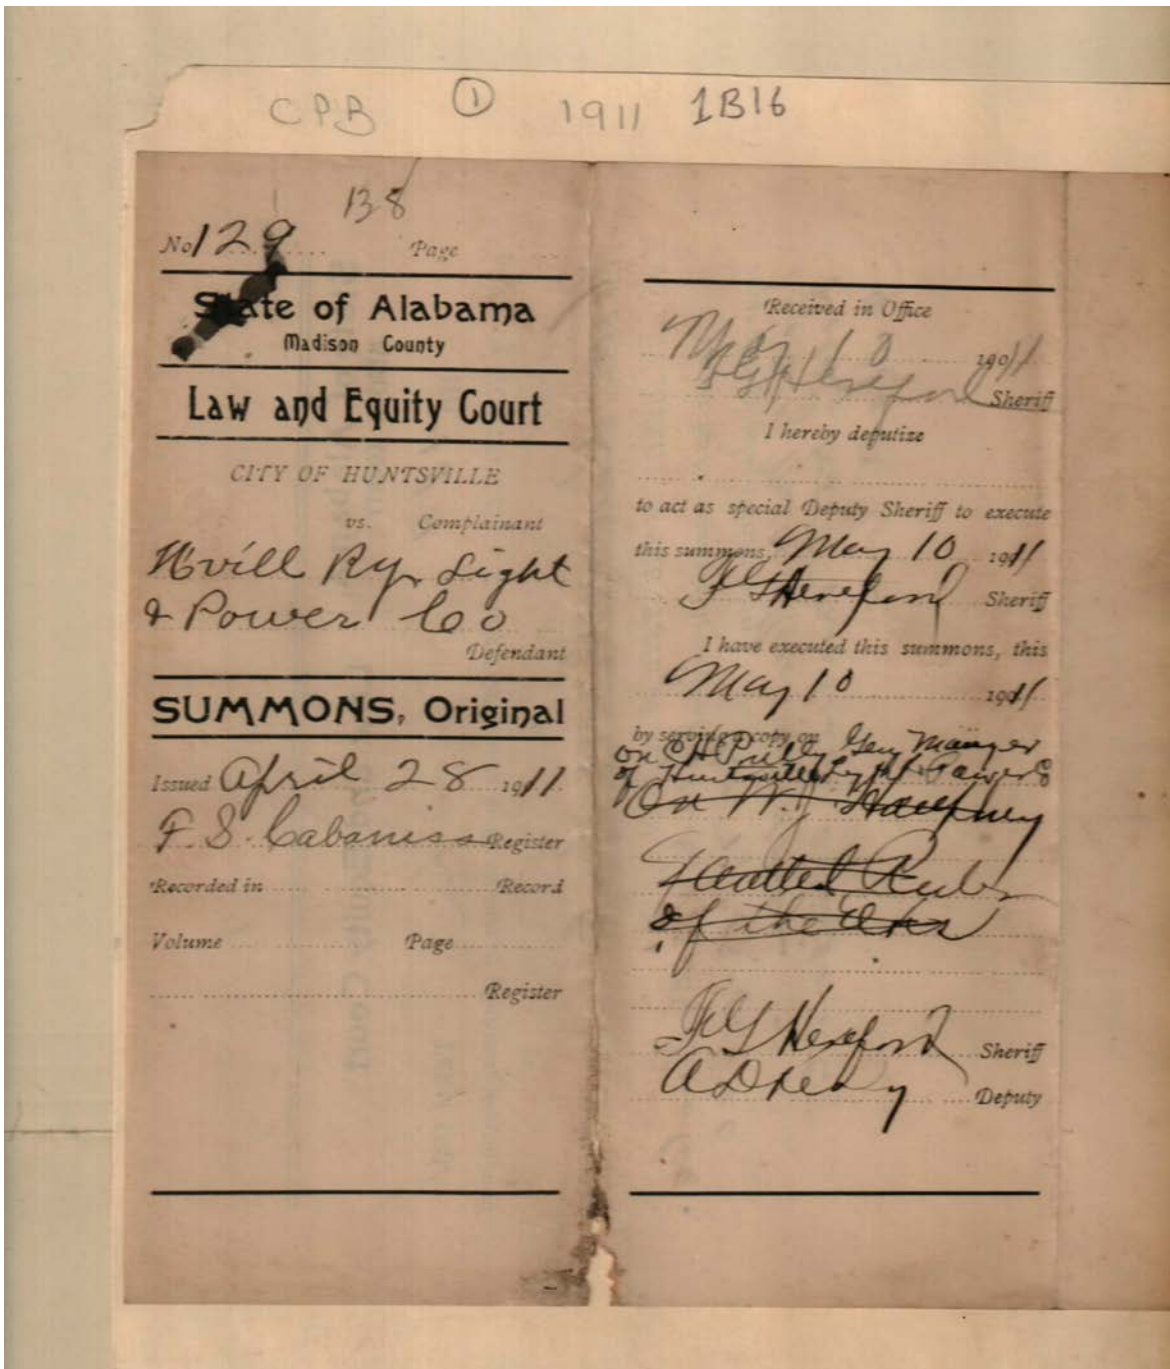 CPB 1 1911 1B16
138
No 129 Page
State of Alabama
Madison County
Law and Equity Court
CITY OF HUNTSVILLE
vs. Complainant
Hvill Ry, Light
& Power Co
Defendant
SUMMONS, Original
Issued April 28 1911
F. S. Cabaniss Register
Recorded in Record
Volume Page
Register
Received in Office
May 10 1911
F G Hereford Sheriff
I hereby deputize
to act as special Deputy Sheriff to execute
this summons, May 10 1911
F G Hereford Sheriff
I have executed this summons, this
May 10 1911
by serving a copy on
on C H Gen Manger
of Huntsville Light Power Co
On W. J.
of the
F G Hereford Sheriff
Deputy